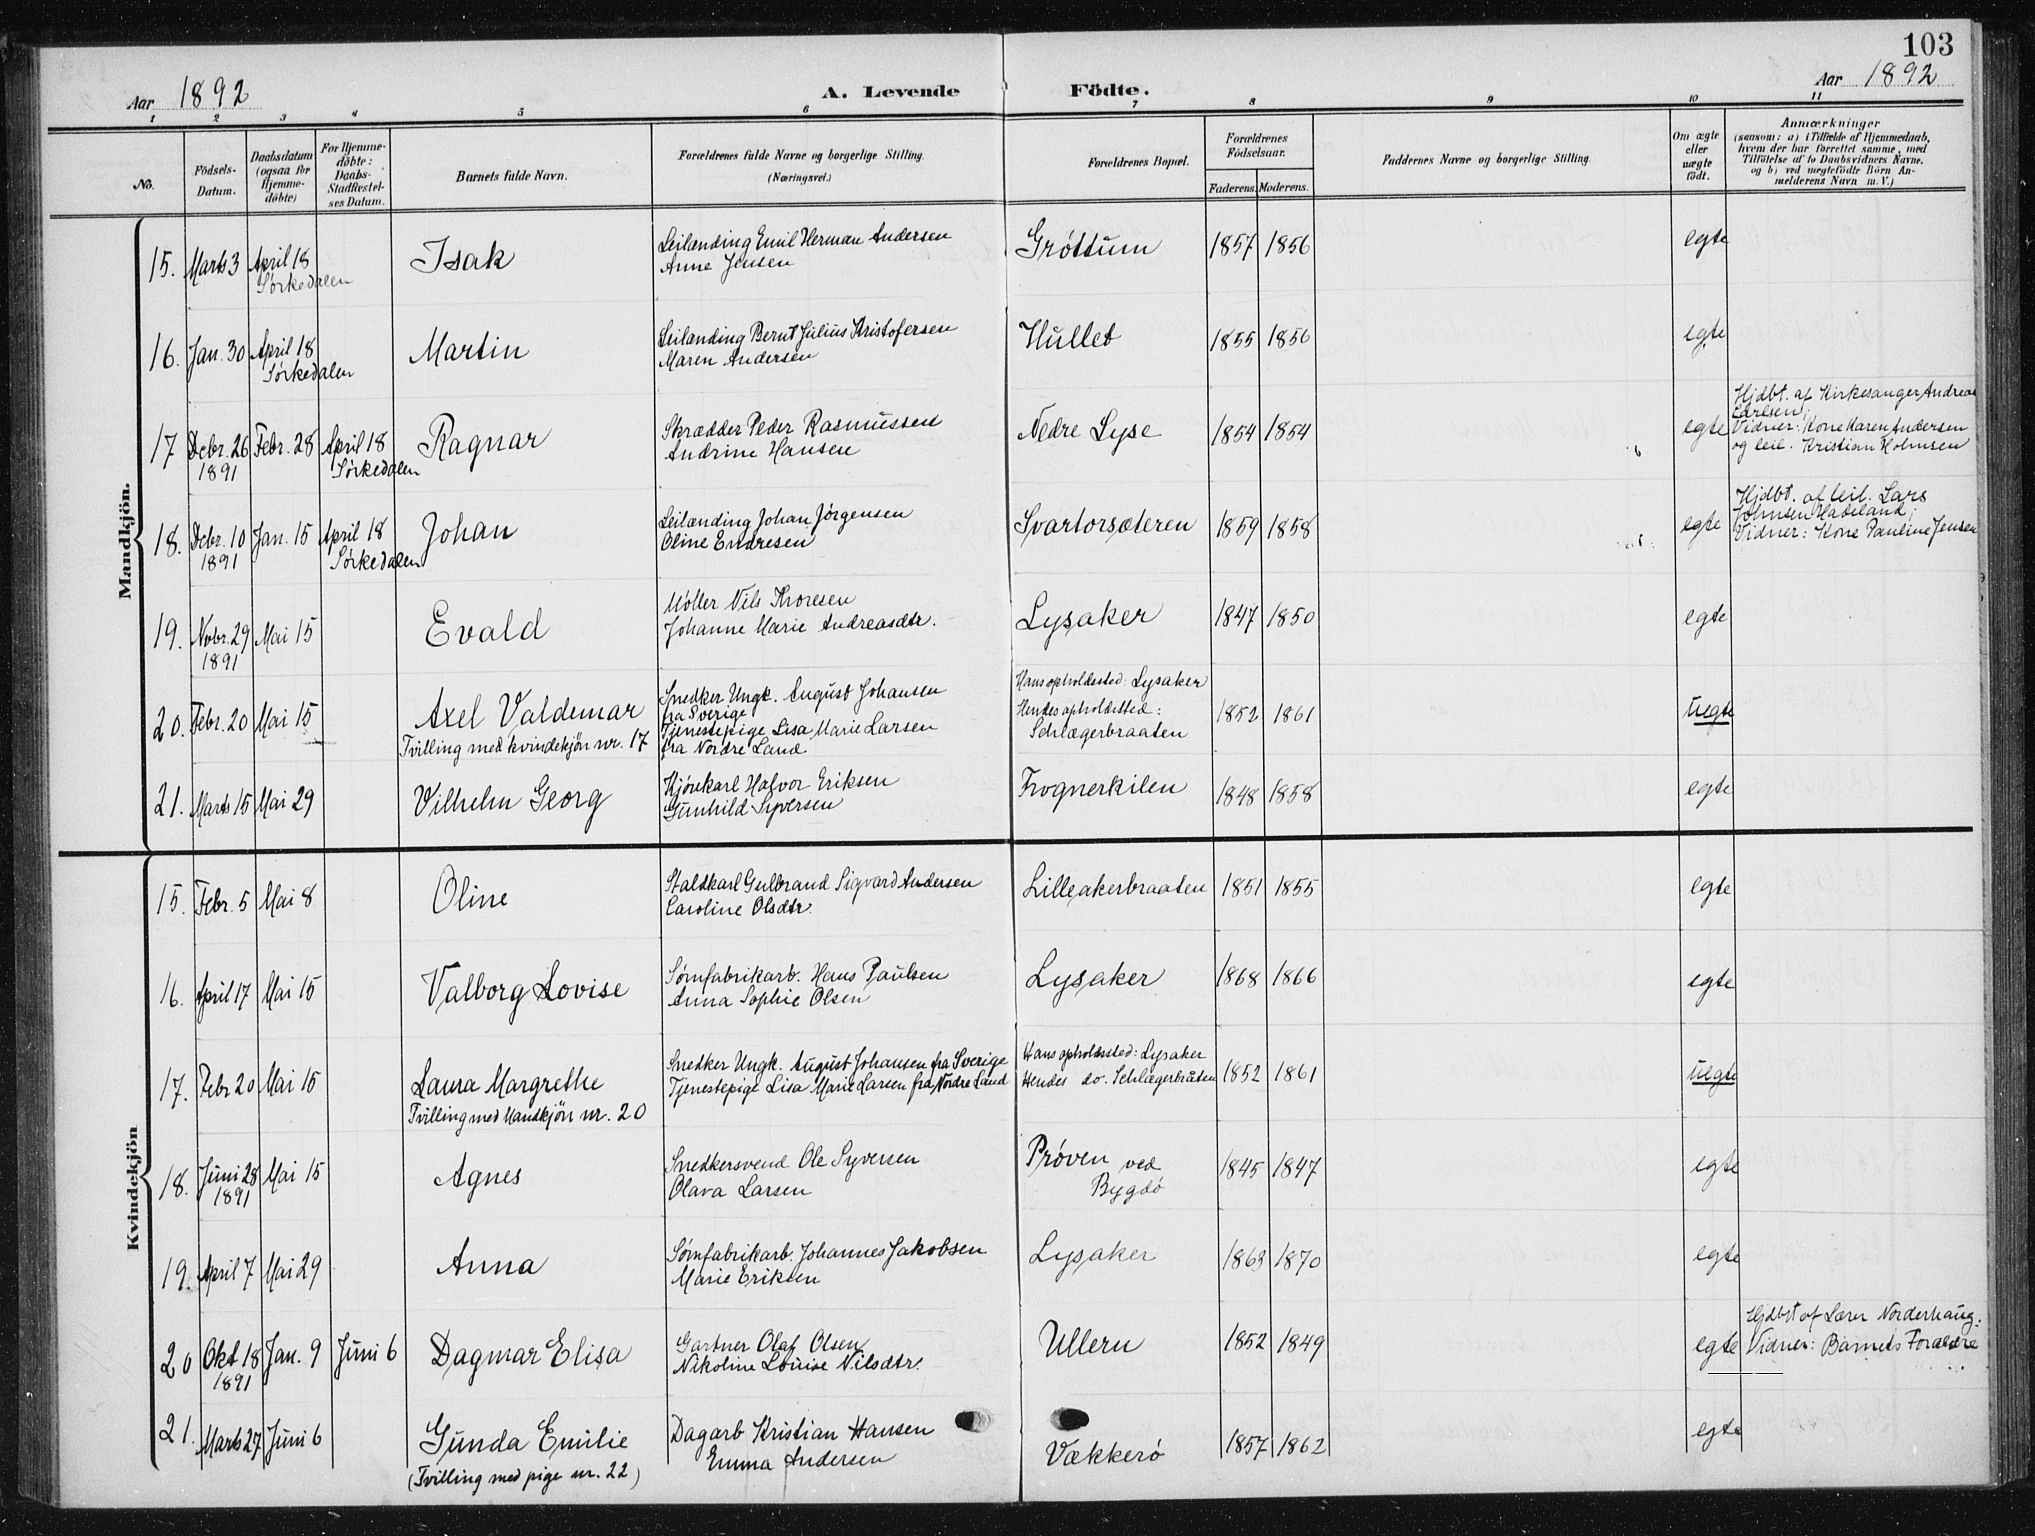 103
Aar 1892
A. Levende Födte.
Aar 1892
1 2 3 4 5 6 7 8 9 10 11
No.
Födsels-Datum.
Daabsdatum (ogsaa for Hjemme-döbte)
For Hjemme-döbte: Daabs-Stadfæstel-ses Datum.
Barnets fulde Navn.
Forældrenes fulde Navne og borgerlige Stilling.
(Næringsvei.)
Forældrenes Bopæl.
Forældrenes Födselsaar.
Faderens. Moderens.
Faddernes Navne og borgerlige Stilling.
Om ægte eller uægte födt.
Anmærkninger
(saasom: a) i Tilfælde af Hjemmedaab,
hvem der har forrettet samme, med
Tilföielse af to Daabsvidners Navne.
og b) ved uægtefödte Börn An-
melderens Navn m. V.)
Mandkjön.
15. Marts 3 April 18 Isak Leilænding Emil Herman Andersen Grøttum 1857 1856 egte
Sørkedalen Anne Jensen
16. Jan. 30 April 18 Martin Leilænding Bernt Julius Kristofersen Hullet 1855 1856 egte
Sørkedalen Maren Andersen
17 Debr. 26 Febr. 28 April 18 Ragnar Skrædder Peder Rasmussen Nedre Lyse 1854 1854 egte
1891 Sørkedalen Andrine Hansen
Hjdbt. af Kirkesanger Andreas
Carlsen;
Vidner: Kone Karen Andersen
og leil. Kristian Holmsen
18. Debr. 10 Jan. 15 April 18 Johan Leilænding Johan Jørgensen Svartorsæteren 1859 1858 egte
1891 Sørkedalen Oline Endresen
Hjdbt. af leil. Lars
Johnsen Hadeland;
Vidner: Kone Pauline Jensen
19. Nobr. 29 Mai 15 Evald Møller Nils Thoresen Lysaker 1847 1850 egte
1891 Johanne Marie Andreasdtr.
20. Febr. 20 Mai 15 Axel Valdemar Snedker Ungk. August Johansen Hans opholdssted: Lysaker 1852 1861 uegte
fra Sverige Hendes opholdssted:
Tvilling med kvindekjön nr. 17 Tjenestepige Lisa Marie Larsen Schlægerbraaten
fra Nordre Land
21. Marts 15 Mai 29 Vilhelm Georg Kjørekarl Halvor Eriksen Frognerkilen 1848 1858 egte
Gunhild Syversen
Kvindekjön
15. Febr. 5 Mai 8 Oline Staldkarl Gulbrand Sigvard Andersen Lilleakerbraaten 1851 1855 egte
Caroline Olsdtr.
16. April 17 Mai 15 Valborg Lovise Sømfabrikarb. Hans Paulsen Lysaker 1868 1866 egte
Anna Sophie Olsen
17. Febr 20 Mai 15 Laura Margrethe Snedker Ungk. August Johansen fra Sverige Hans opholdssted: Lysaker 1852 1861 uegte
Tjenestepige Lisa Marie Larsen fra Nordre Land Hendes do. Schlægerbråten
Tvilling med Mandkjön nr. 20
18. Juni 28 Mai 15 Agnes Snedkersvend Ole Syversen Prøven ved 1845 1847 egte
1891 Olava Larsen Bygdö
19. April 7 Mai 29 Anna Sømfabrikarb. Johannes Jakobsen Lysaker 1863 1870 egte
Marie Eriksen
20 Okt 18 Jan. 9 Juni 6 Dagmar Elisa Gartner Olaf Olsen Ullern 1852 1849 egte
1891 Nikoline Louise Nilsdtr.
Hjdbt af Lærer Norderhaug:
Vidner: Barnets Forældre
21. Marts 27 Juni 6 Gunda Emilie Dagarb Kristian Hansen Vækkerö 1857 1862 egte
(Tvilling med pige nr. 22) Emma Andersen